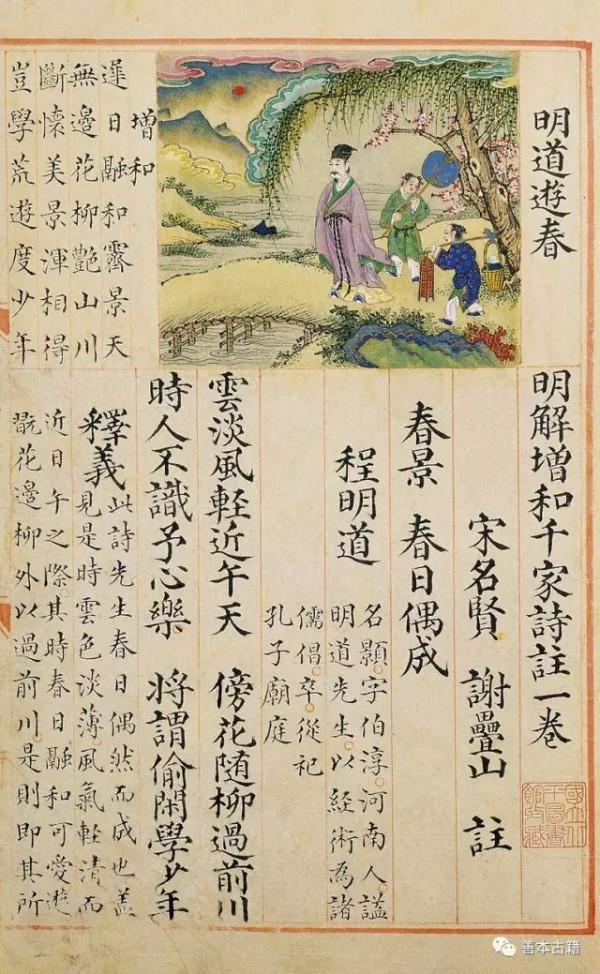 明道遊春
增和
遲日融和霽景天
無邊花柳艷山川
斷懷美景渾相得
豈學荒遊度少年
明解增和千家詩註一卷
宋名賢 謝疊山 註
春景 春日偶成
程明道
名顥字伯淳河南人諡
明道先生以經術為諸
儒倡卒從祀
孔子廟庭
雲淡風軽近午天 傍花随柳過前川
時人不識予心樂 將謂偷閑學少年
釋義
此詩先生春日偶然而成也盖
見是時雲色淡薄風氣軽清而
近日午之際其時春日融和可愛遊
翫花邊柳外以過前川是則即其所
國立北
平圖書
館收藏
善本古籍